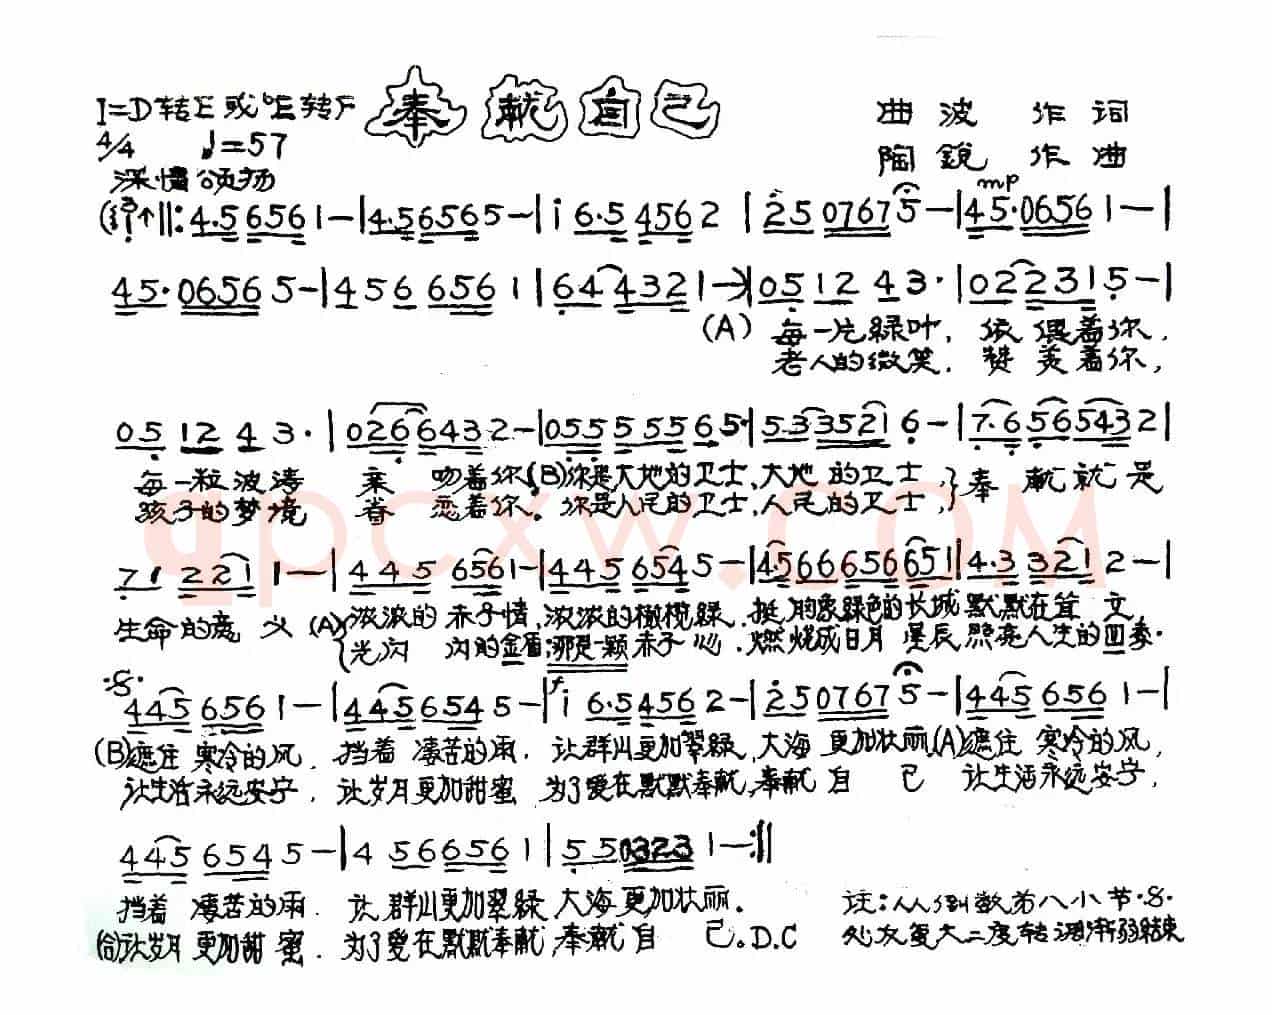 奉献自己
1=D转E或♭E转F
曲波 作词
4/4 ♩=57
陶锐 作曲
深情颂扬
mp
4.5 6561— | 4.56565— | i 6.5 4562 | 250767 5— | 45.06561— |
45.06565— | 456 6561 | 64 4321 | 0512 43. | 022315— |
(A) 每一片緑叶，依偎着你，
老人的微笑，赞美着你，
0512 43. | 0266432— | 0555 55565. | 533352 16— | 7.6 565432 |
每一粒波涛 亲吻着你，(B)你是大地的卫士，大地的卫士，}奉献就是
孩子的梦境 眷恋着你。你是人民的卫士，人民的卫士，
71 221 1— | 445 6561— | 445 6545— | 4.566656651 | 4.3 3212— |
生命的意义 (A){浓浓的赤子情，浓浓的橄榄緑，挺 的象緑色的长城默默在耸 文
光闪闪的金盾，那是一颗赤子心．燃烧成日月星辰照亮人生的四季．
·S·
445 6561— | 4456545— | f i 6.54562— | 250767 5— | 445 6561— |
(B)遮住寒冷的风，挡着凄苦的雨．让群山更加翠緑，大海更加壮丽(A)遮住寒冷的风，
让生活永远安宁，让岁月更加甜蜜 为了爱在默默奉献，奉献自己 让生活永远安宁，
445 6545— | 4 566561 | 5503231—:||
挡着凄苦的雨．让群山更加翠緑 大海更加壮丽．
注：从倒数第八小节·S·
(合)让岁月更加甜蜜．为了爱在默默奉献，奉献自己。D.C
处反复大二度转调渐弱结束
qpcxw.COM